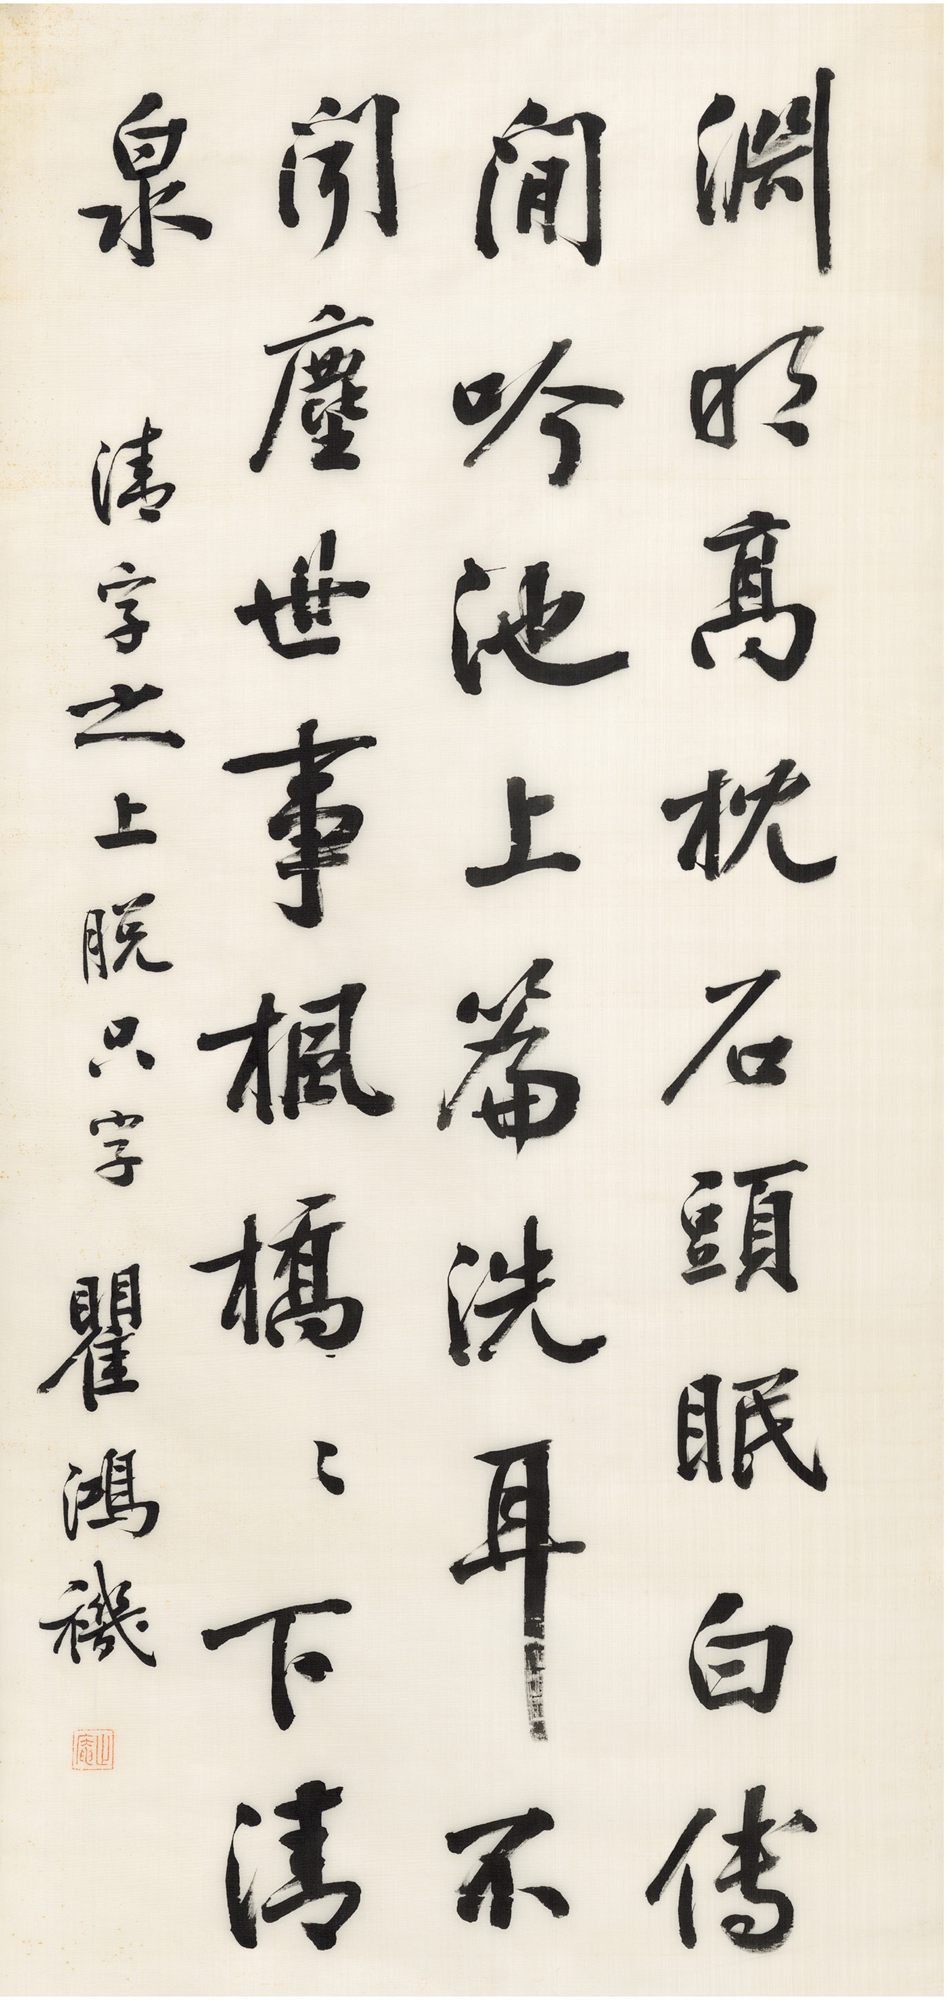 淵明高枕石頭眠白傅
閒吟池上篇洗耳不
聞塵世事楓橋〻下清
泉
清字之上脱只字
瞿鴻禨